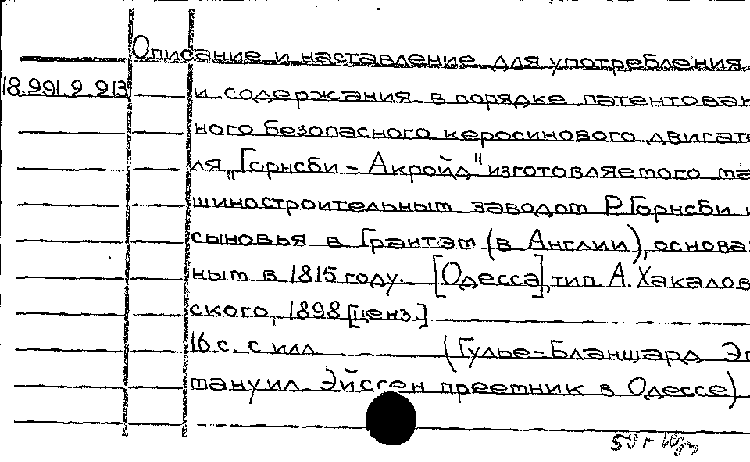 Описание и наставление для употребления
18.991.9.913 и содержания в порядке патентован
ного безопасного керосинового двигате
ля „Горнсби - Акройд" изготовляемого ма
шиностроительным заводом Р. Горнсби и
сыновья в Грантэм (в Англии), основан
ным в 1815 году. [Одесса], тип. А. Хакалов
ского, 1898 [ценз.]
16 с. с илл. (Гулье-Бланшард Эм
мануил. Эйссен преемник в Одессе)